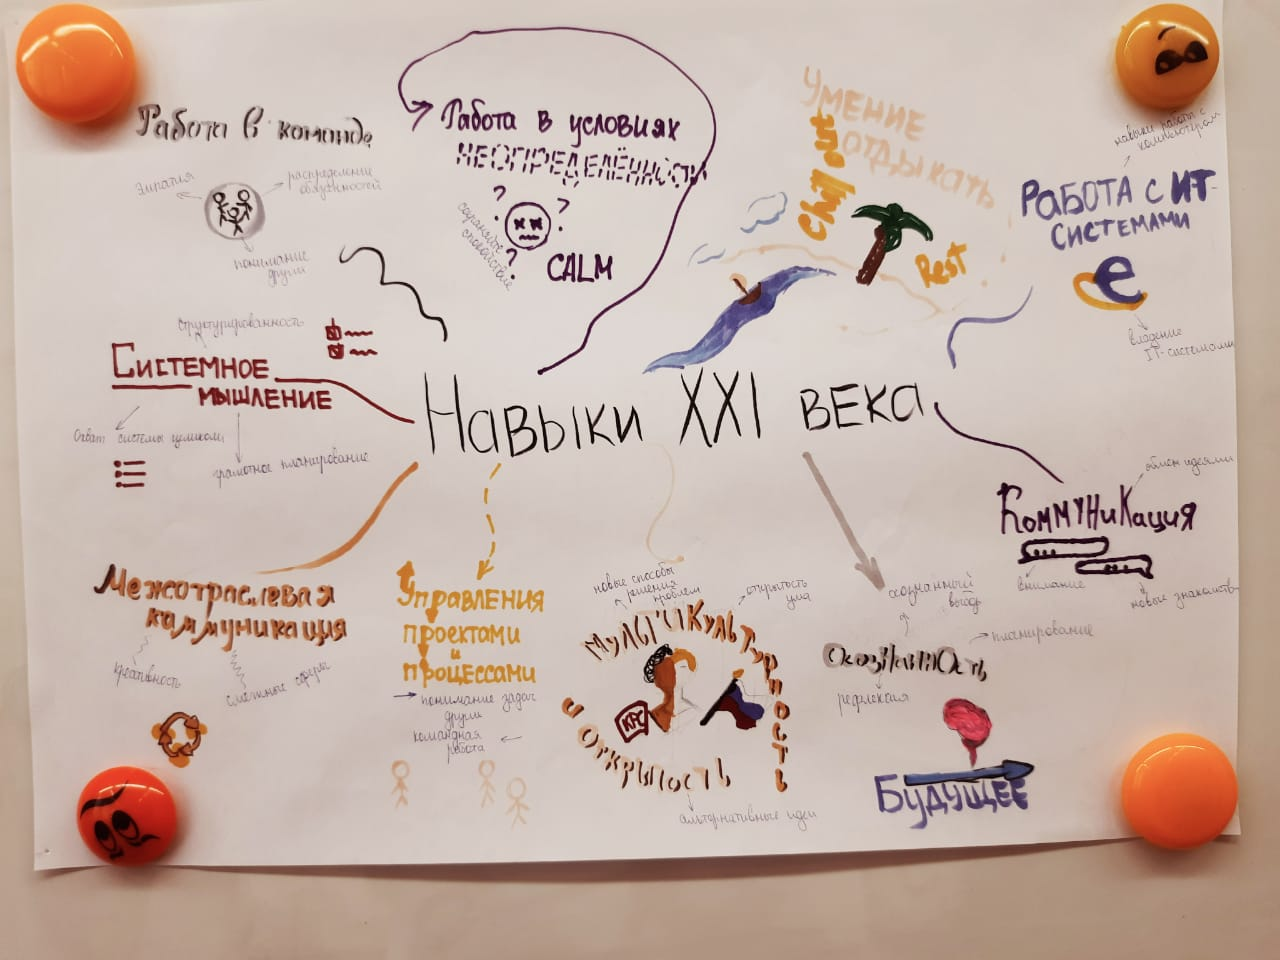 Работа в команде
эмпатия
распределение
обязанностей
понимание
других
Работа в условиях
НЕОПРЕДЕЛЁННОСТИ
сохраняйте
спокойствие
? ? ?
CALM
УМЕНИЕ
ОТДЫХАТЬ
Chill out
Rest
навыки работы с
компьютером
РАБОТА С ИТ-
СИСТЕМАМИ
e
владение
IT-системами
структурированность
СИСТЕМНОЕ
МЫШЛЕНИЕ
Охват системы целиком
грамотное планирование
НАВЫКИ XXI ВЕКА
обмен идеями
Коммуникация
внимание
новые знакомств
Межотраслевая
коммуникация
креативность
смежные сферы
Управления
проектами
и
процессами
понимание задач
других
командная
работа
новые способы
решения
проблем
открытость
ума
Мультикультурность
и Открытость
KFC
альтернативные идеи
осознанный
выбор
планирование
Осознанность
рефлексия
БУДУЩЕЕ